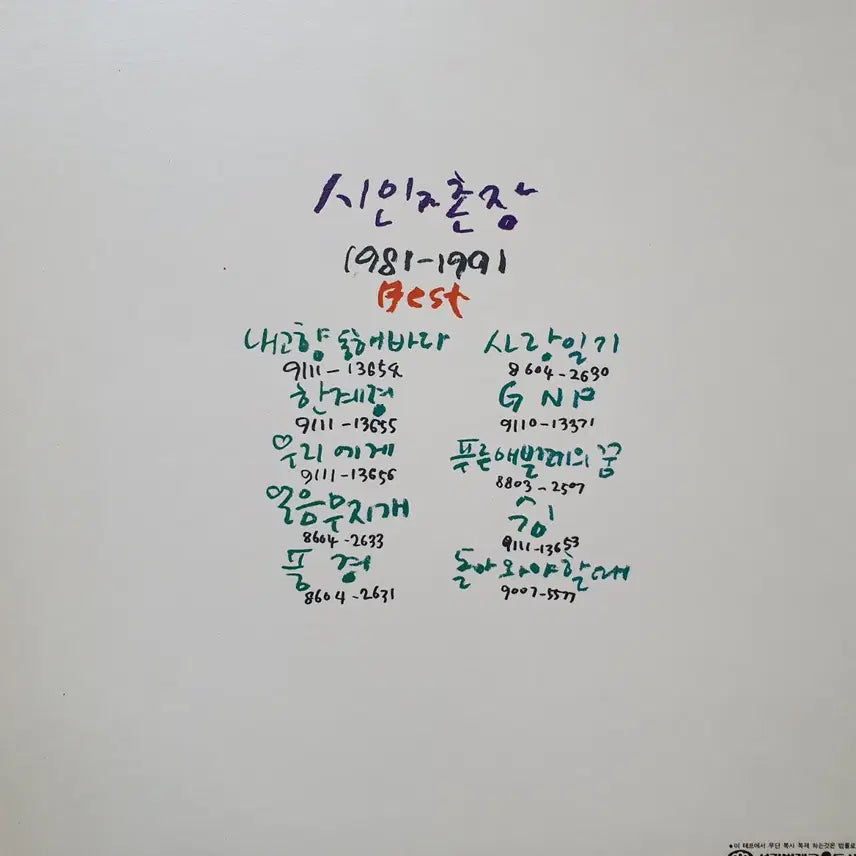 시인과촌장
1981-1991
Best
내고향 동해바다
9111-13654
한계령
9111-13655
우리에게
9111-13656
얼음무지개
8604-2633
풍경
8604-2631
사랑일기
8604-2630
GNP
9110-13371
푸른애벌레의꿈
8803-2507
쉼
9111-13653
돌아와야할때
9007-5577
*이 테프에서 무단 복사 복제 하는것은 법률로